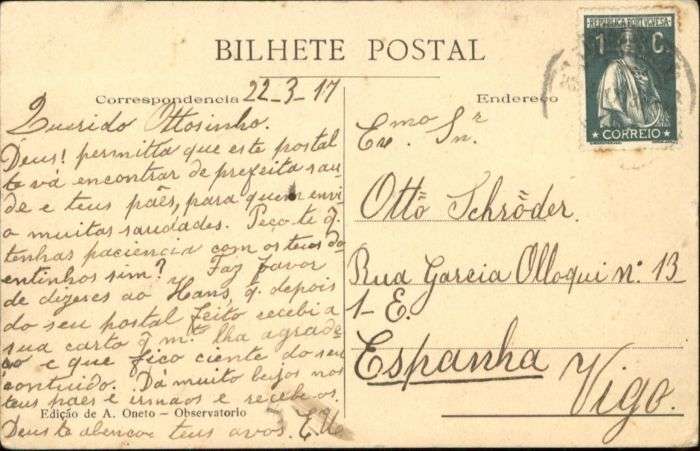 BILHETE POSTAL
REPUBLICA PORTUGUESA
1 C.
CORREIO
Correspondencia 22-3-17
Querido Ottosinho.
Deus! permitta que este postal
te vá encontrar de prefeita sau-
de e teus pães, para quem envi
o muitas saudades. Peço-te q.
tenhas paciencia com os teus do
entinhos sim? Faz favor
de dizeres ao Hans, q. depois
do seu postal feito recebi a
sua carta q mto. lha agrade-
ço e que fico ciente do seu
contuido. Dá muito beijos nos
teus pães e irmãos e recebe os.
Edição de A. Oneto — Observatorio
Deus te abençoe teus avós.
Endereço
Exmo Snr
Ottö Schröder.
Rua Garcia Olloqui nº 13
1- E.
Espanha
Vigo.